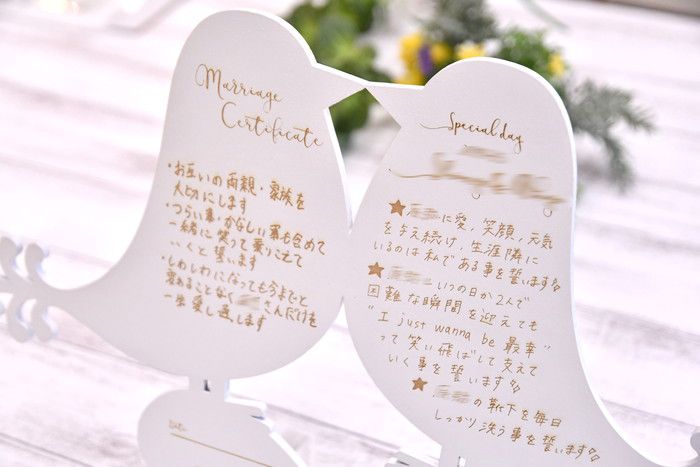 Marriage
Certificate
・お互いの両親・家族を
大切にします
・つらい事・かなしい事も含めて
一緒に笑って乗りこえて
いくと誓います
・しわしわになっても今までと
変わることなく さんだけを
一生愛し通します
Date
Special day
★ に愛,笑顔,元気
を与え続け,生涯隣に
いるのは私である事を誓います
★ いつの日か2人で
困難な瞬間を迎えても
"I just wanna be 最幸"
って笑い飛ばして支えて
いく事を誓います
★ の靴下を毎日
しっかり洗う事を誓います